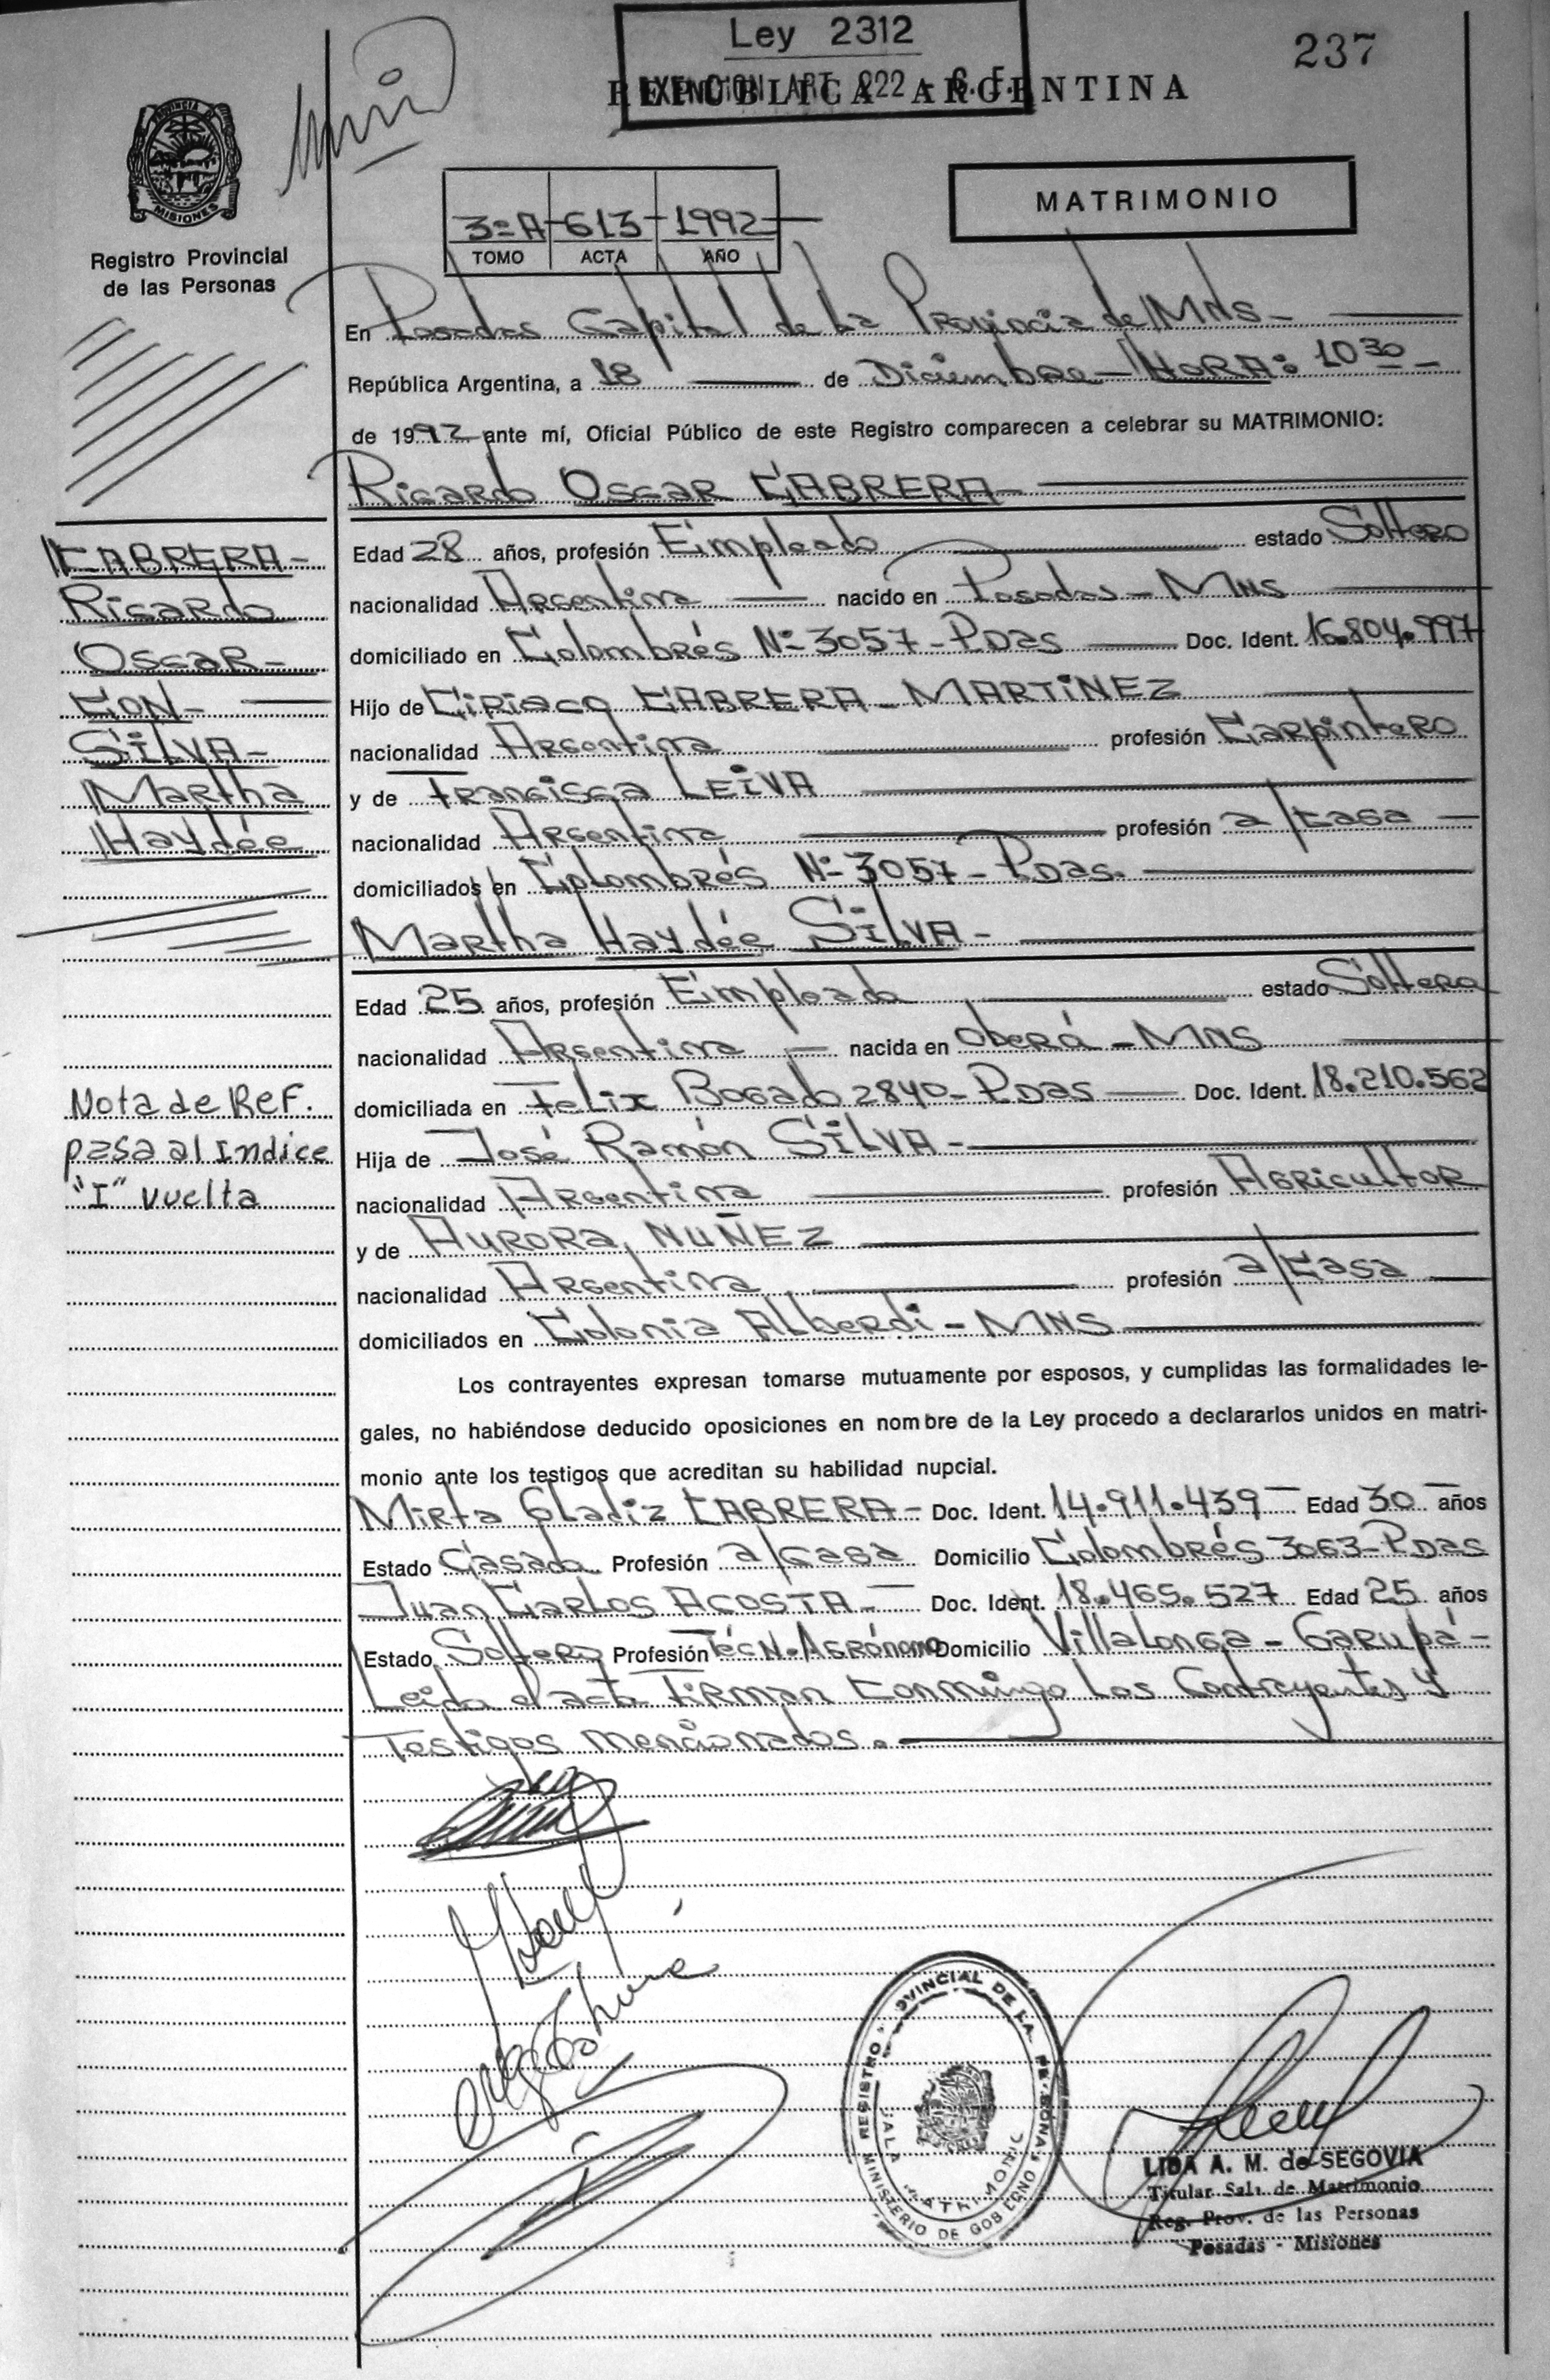 Ley 2312
EXENCION ART 222 - C. F.
237
REPUBLICA ARGENTINA
PROVINCIA
MISIONES
Registro Provincial
de las Personas
MATRIMONIO
3ºA 613 1992
TOMO ACTA AÑO
En Posadas Capital de La Provincia de Mns-
República Argentina, a 18 de Diciembre - HORA: 10 30 -
de 1992 ante mí, Oficial Público de este Registro comparecen a celebrar su MATRIMONIO:
Ricardo Oscar CABRERA-
CABRERA-
Ricardo
Oscar-
CON-
SILVA-
Martha
Haydée
Edad 28 años, profesión Empleado estado Soltero
nacionalidad Argentina nacido en Posadas - Mns
domiciliado en Colombrés Nº 3057 - Pdas Doc. Ident. 16.804.997
Hijo de Ciriaco CABRERA - MARTINEZ
nacionalidad Argentina profesión Carpintero
y de Francisca LEIVA
nacionalidad Argentina profesión a/casa
domiciliados en Colombrés Nº 3057 - Pdas.
Martha Haydée SILVA -
Edad 25 años, profesión Empleada estado Soltera
nacionalidad Argentina nacida en Oberá - Mns
domiciliada en Felix Bogado 2840 - Pdas Doc. Ident. 18.210.562
Hija de José Ramón SILVA -
nacionalidad Argentina profesión Agricultor
y de AURORA, NUÑEZ
nacionalidad Argentina profesión a/casa
domiciliados en Colonia Alberdi - Mns
Nota de Ref.
pasa al Indice
"I" vuelta
Los contrayentes expresan tomarse mutuamente por esposos, y cumplidas las formalidades le-
gales, no habiéndose deducido oposiciones en nombre de la Ley procedo a declararlos unidos en matri-
monio ante los testigos que acreditan su habilidad nupcial.
Mirta Gladiz CABRERA - Doc. Ident. 14.911.439 Edad 30 años
Estado Casada Profesión a/casa Domicilio Colombrés 3063 - Pdas
Juan Carlos ACOSTA - Doc. Ident. 18.465.527 Edad 25 años
Estado Soltero Profesión Técn. Agrónomo Domicilio Villalonga - Garupá -
Leida el acta firman conmingo los Contrayentes y
Testigos mencionados.
REGISTRO PROVINCIAL DE LAS PERSONAS
SALA MATRIMONIO
MINISTERIO DE GOBIERNO
LIDA A. M. de SEGOVIA
Titular Sala de Matrimonio
Reg. Prov. de las Personas
Posadas - Misiones